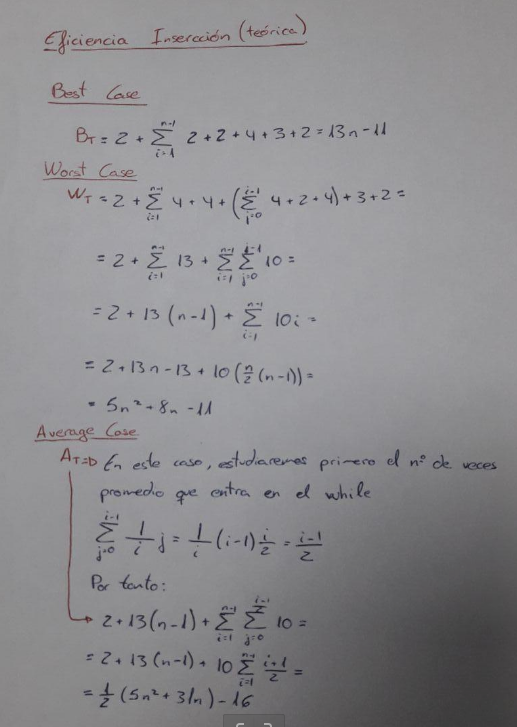 Eficiencia Insercción (teórica)
Best Case
B_T = 2 + ∑_{i=1}^{n-1} 2 + 2 + 4 + 3 + 2 = 13n - 11
Worst Case
W_T = 2 + ∑_{i=1}^{n-1} 4 + 4 + (∑_{j=0}^{i-1} 4 + 2 + 4) + 3 + 2 =
= 2 + ∑_{i=1}^{n-1} 13 + ∑_{i=1}^{n-1} ∑_{j=0}^{i-1} 10 =
= 2 + 13 (n-1) + ∑_{i=1}^{n-1} 10i =
= 2 + 13n - 13 + 10 (n/2 (n-1)) =
= 5n² + 8n - 11
Average Case
A_T => En este caso, estudiaremos primero el nº de veces
promedio que entra en el while
∑_{j=0}^{i-1} 1/i j = 1/i (i-1) i/2 = i-1/2
Por tanto:
2 + 13(n-1) + ∑_{i=1}^{n-1} ∑_{j=0}^{i-1/2} 10 =
= 2 + 13(n-1) + 10 ∑_{i=1}^{n-1} i+1/2 =
= 1/2 (5n² + 31n) - 16